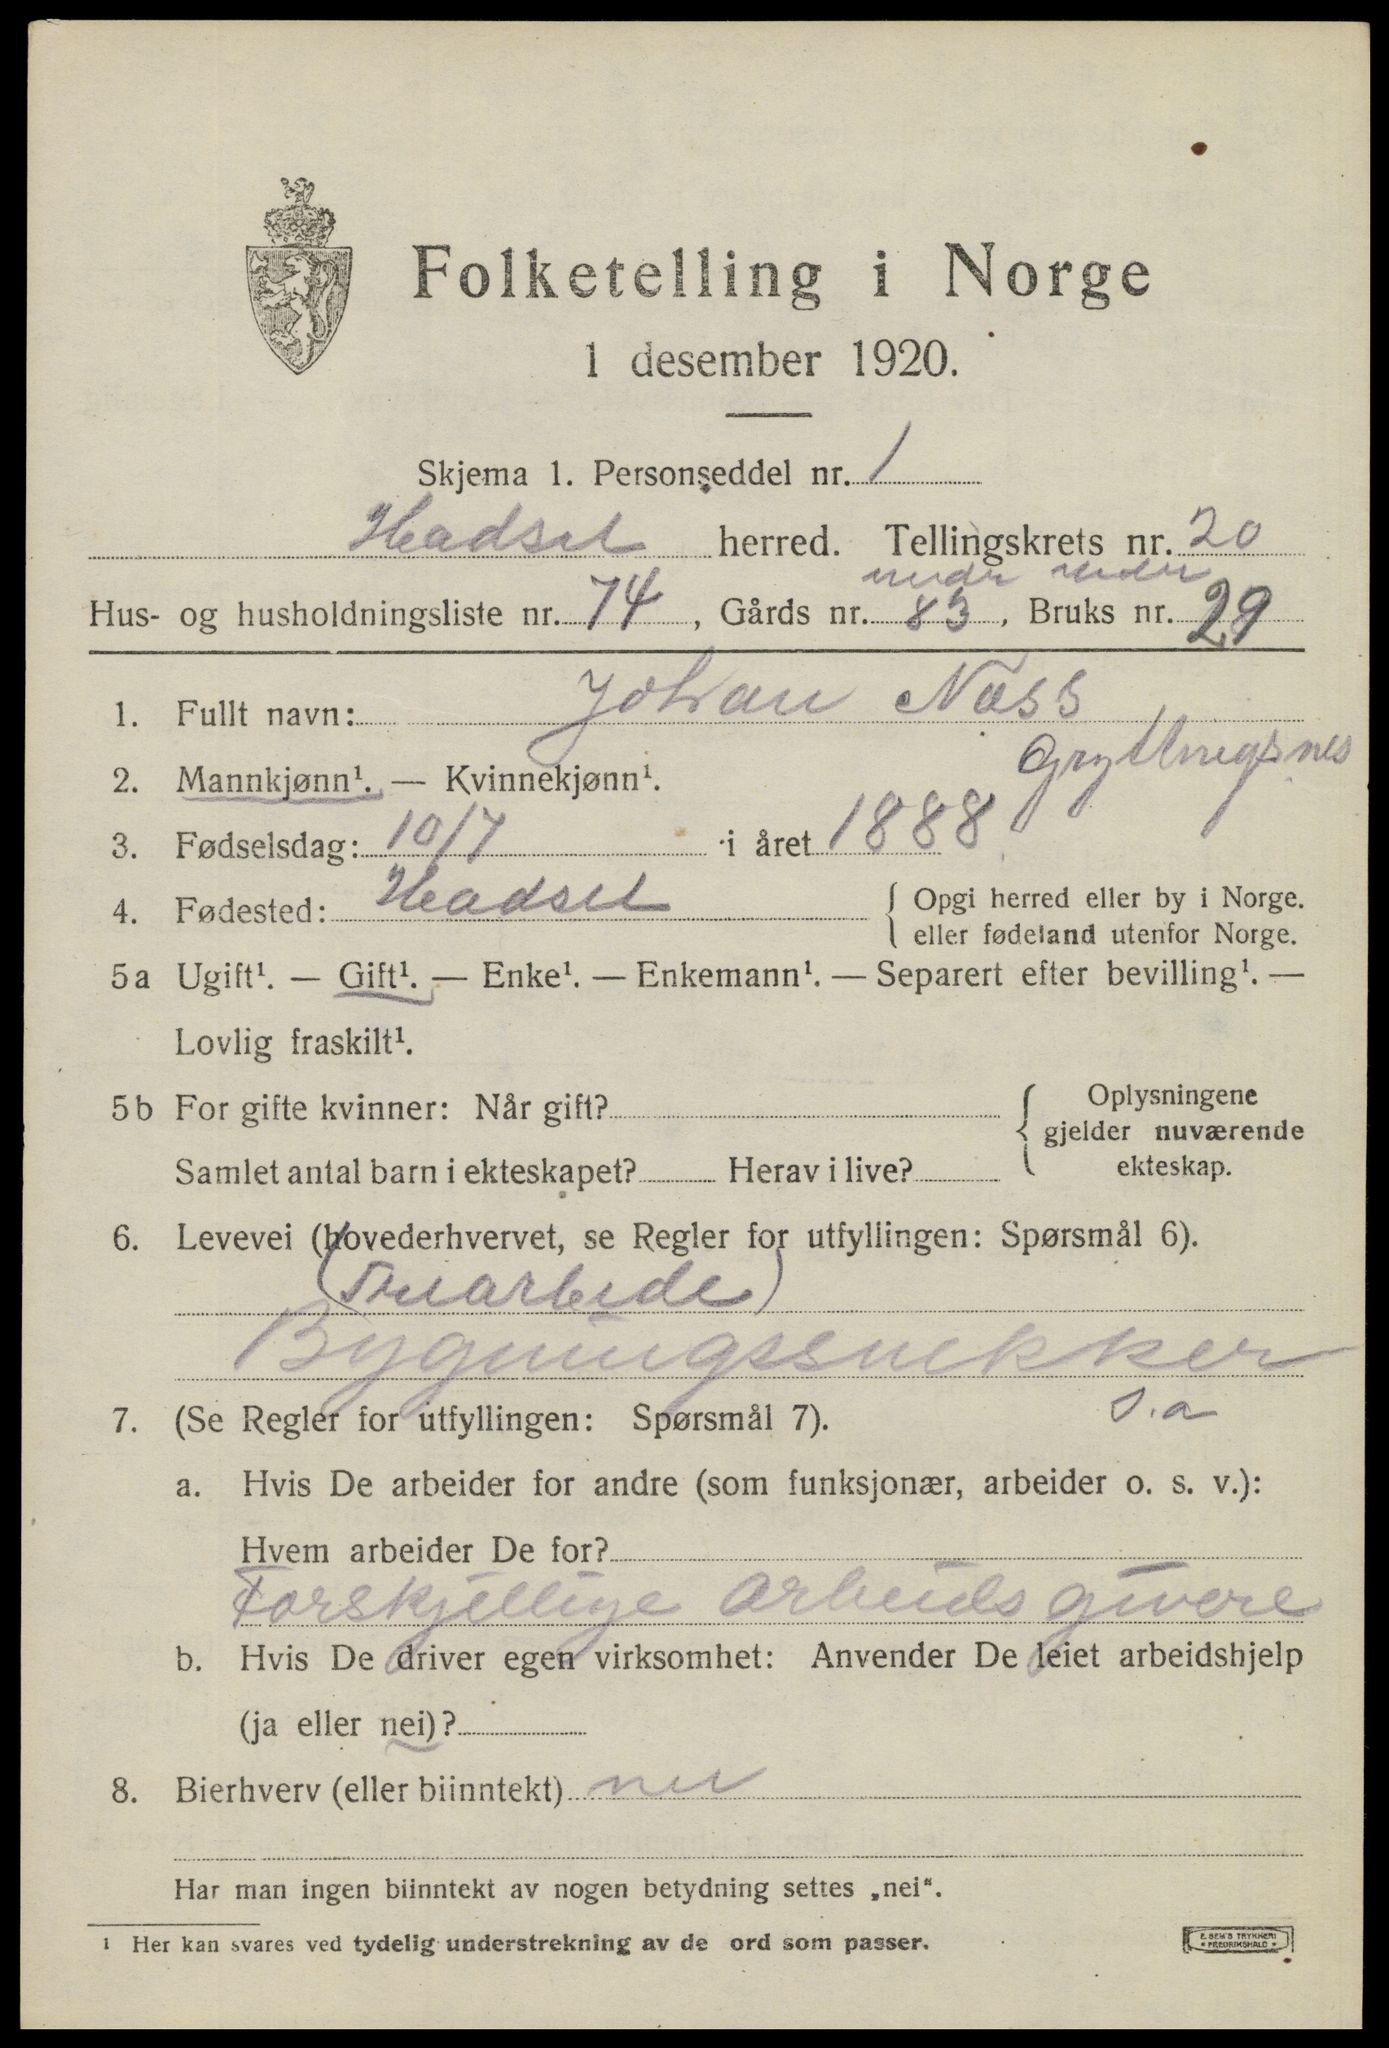 Folketelling i Norge
1 desember 1920.
Skjema 1. Personseddel nr. 1
Hadsel herred. Tellingskrets nr. 20
under under
Hus- og husholdningsliste nr. 74, Gårds nr. 83, Bruks nr. 29
1. Fullt navn: Johan Næss
2. Mannkjønn¹. — Kvinnekjønn¹.
3. Fødselsdag: 10/7 i året 1888
4. Fødested: Hadsel { Opgi herred eller by i Norge.
eller fødeland utenfor Norge.
5a Ugift¹. — Gift¹. — Enke¹. — Enkemann¹. — Separert efter bevilling¹. —
Lovlig fraskilt¹.
5b For gifte kvinner: Når gift? { Oplysningene
gjelder nuværende
ekteskap.
Samlet antal barn i ekteskapet? Herav i live?
6. Levevei (hovederhvervet, se Regler for utfyllingen: Spørsmål 6).
(Træarbeide)
Bygningssnekker
s.a
7. (Se Regler for utfyllingen: Spørsmål 7).
a. Hvis De arbeider for andre (som funksjonær, arbeider o. s. v.):
Hvem arbeider De for?
Forskjellige arbeidsgivere
b. Hvis De driver egen virksomhet: Anvender De leiet arbeidshjelp
(ja eller nei)?
8. Bierhverv (eller biinntekt) nei
Har man ingen biinntekt av nogen betydning settes „nei“.
¹ Her kan svares ved tydelig understrekning av de ord som passer.
E. SEM'S TRYKKERI
FREDRIKSHALD